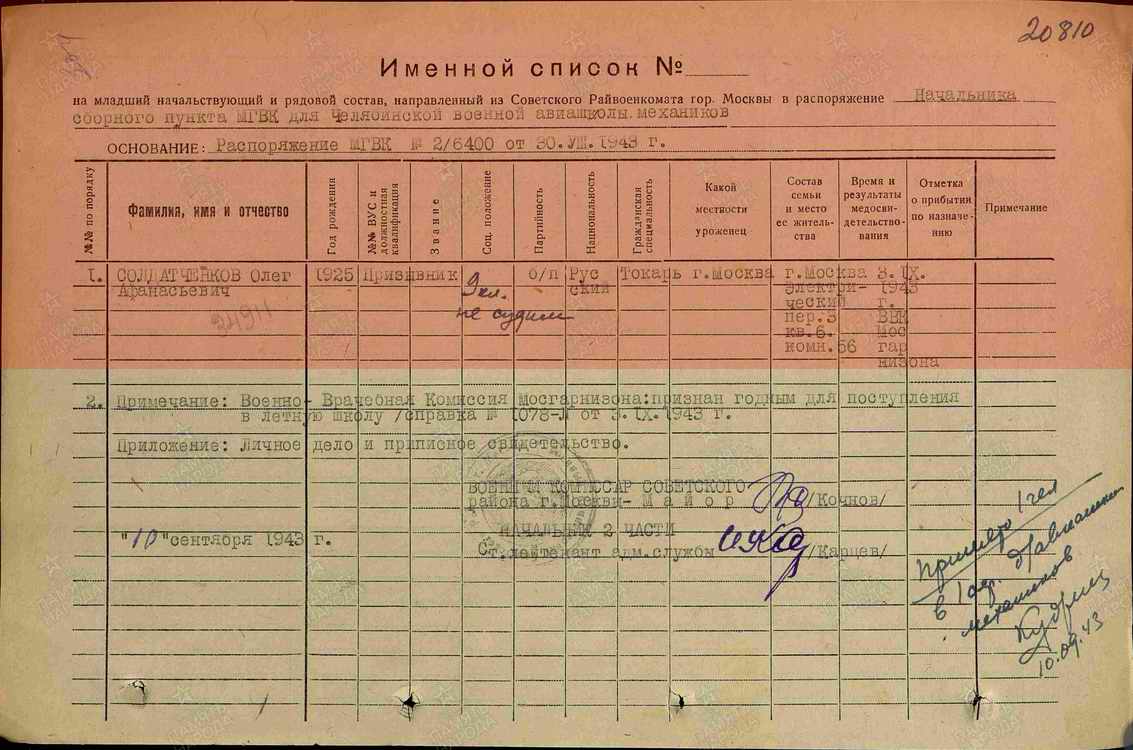 20810
Именной список №
на младший начальствующий и рядовой состав, направленный из Советского Райвоенкомата гор. Москвы в распоряжение Начальника
сборного пункта МГВК для Челябинской военной авиашколы механиков
ОСНОВАНИЕ: Распоряжение МГВК № 2/6400 от 30.УШ.1943 г.
№№ по порядку
Фамилия, имя и отчество
Год рождения
№№ ВУС и должностная квалификация
Звание
Соц. положение
Партийность
Национальность
Гражданская специальность
Какой местности уроженец
Состав семьи и место ее жительства
Время и результаты медосвидетельствования
Отметка о прибытии по назначению
Примечание
1. СОЛДАТЧЕНКОВ Олег 1925 Призывник 9 кл. б/п Рус Токарь г.Москва г.Москва 3.IX.
Афанасьевич не судим ский Электри- 1943
ческий г.
пер.3 ВВК
кв.6. Мос
комн.56 гар
низона
24911
2. Примечание: Военно- Врачебная Комиссия Мосгарнизона:признан годным для поступления
в летную школу /справка № 1078-Л от 3.IX.1943 г.
Приложение: Личное дело и приписное свидетельство.
ВОЕННЫЙ КОМИССАР СОВЕТСКОГО
района г.Москвы- М а й о р /Кочнов/
НАЧАЛЬНИК 2 ЧАСТИ
"10"сентября 1943 г. Ст.лейтенант адм.службы /Карцев/
Принято 1 чел
в
механиков
10.09.43